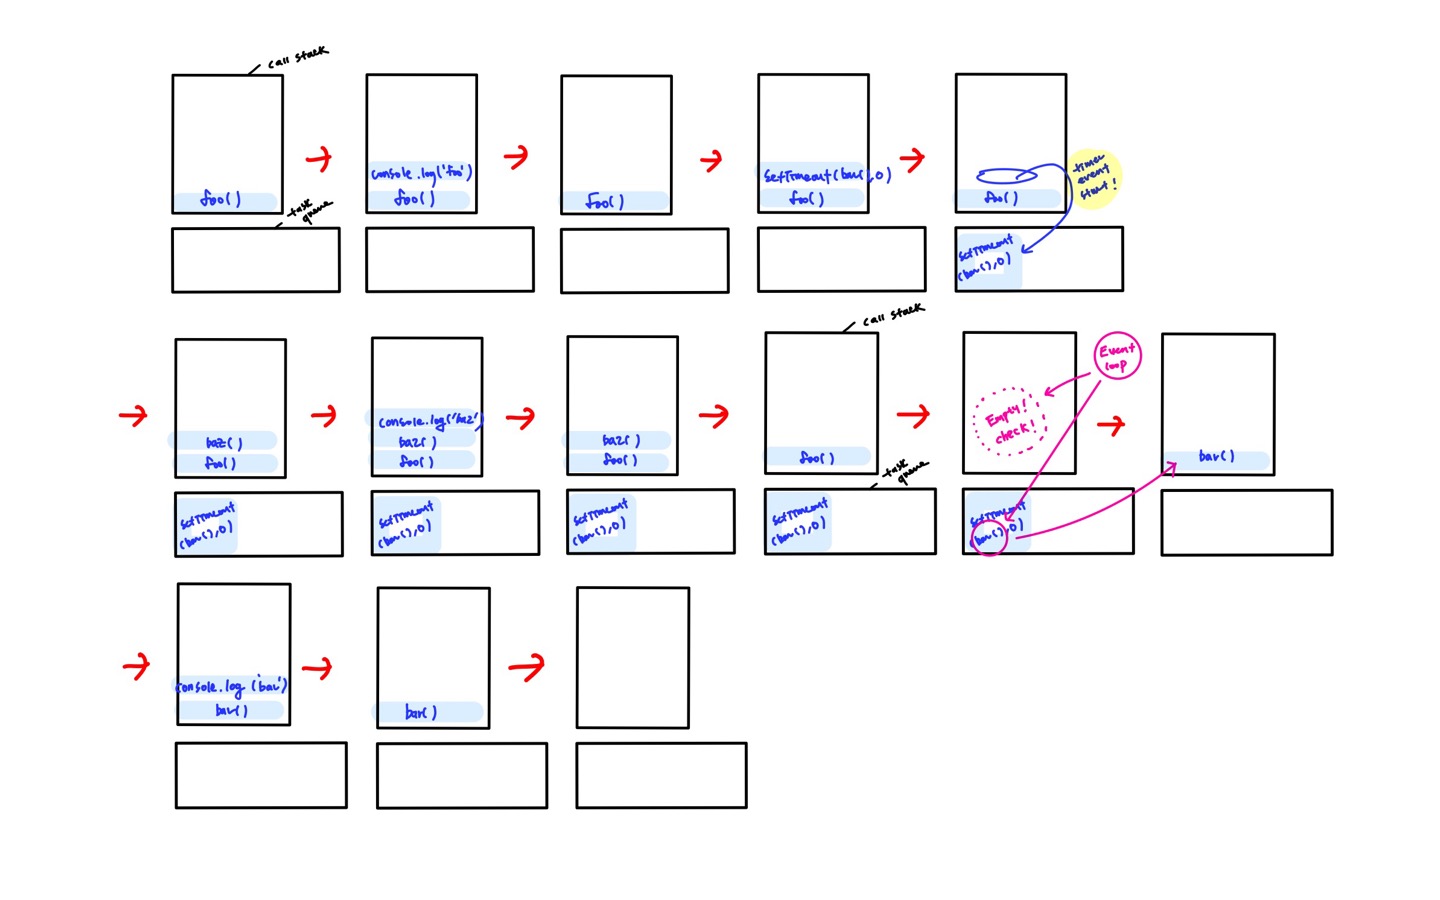 call stack
foo()
task
queue
console.log('foo')
foo()
foo()
setTimeout(bar(),0)
foo()
foo()
timer
event
start!
setTimeout
(bar(),0)
baz()
foo()
setTimeout
(bar(),0)
console.log('baz')
baz()
foo()
setTimeout
(bar(),0)
baz()
foo()
setTimeout
(bar(),0)
call stack
foo()
task
queue
setTimeout
(bar(),0)
Event
loop
Empty!
check!
setTimeout
(bar(),0)
bar()
console.log('bar')
bar()
bar()